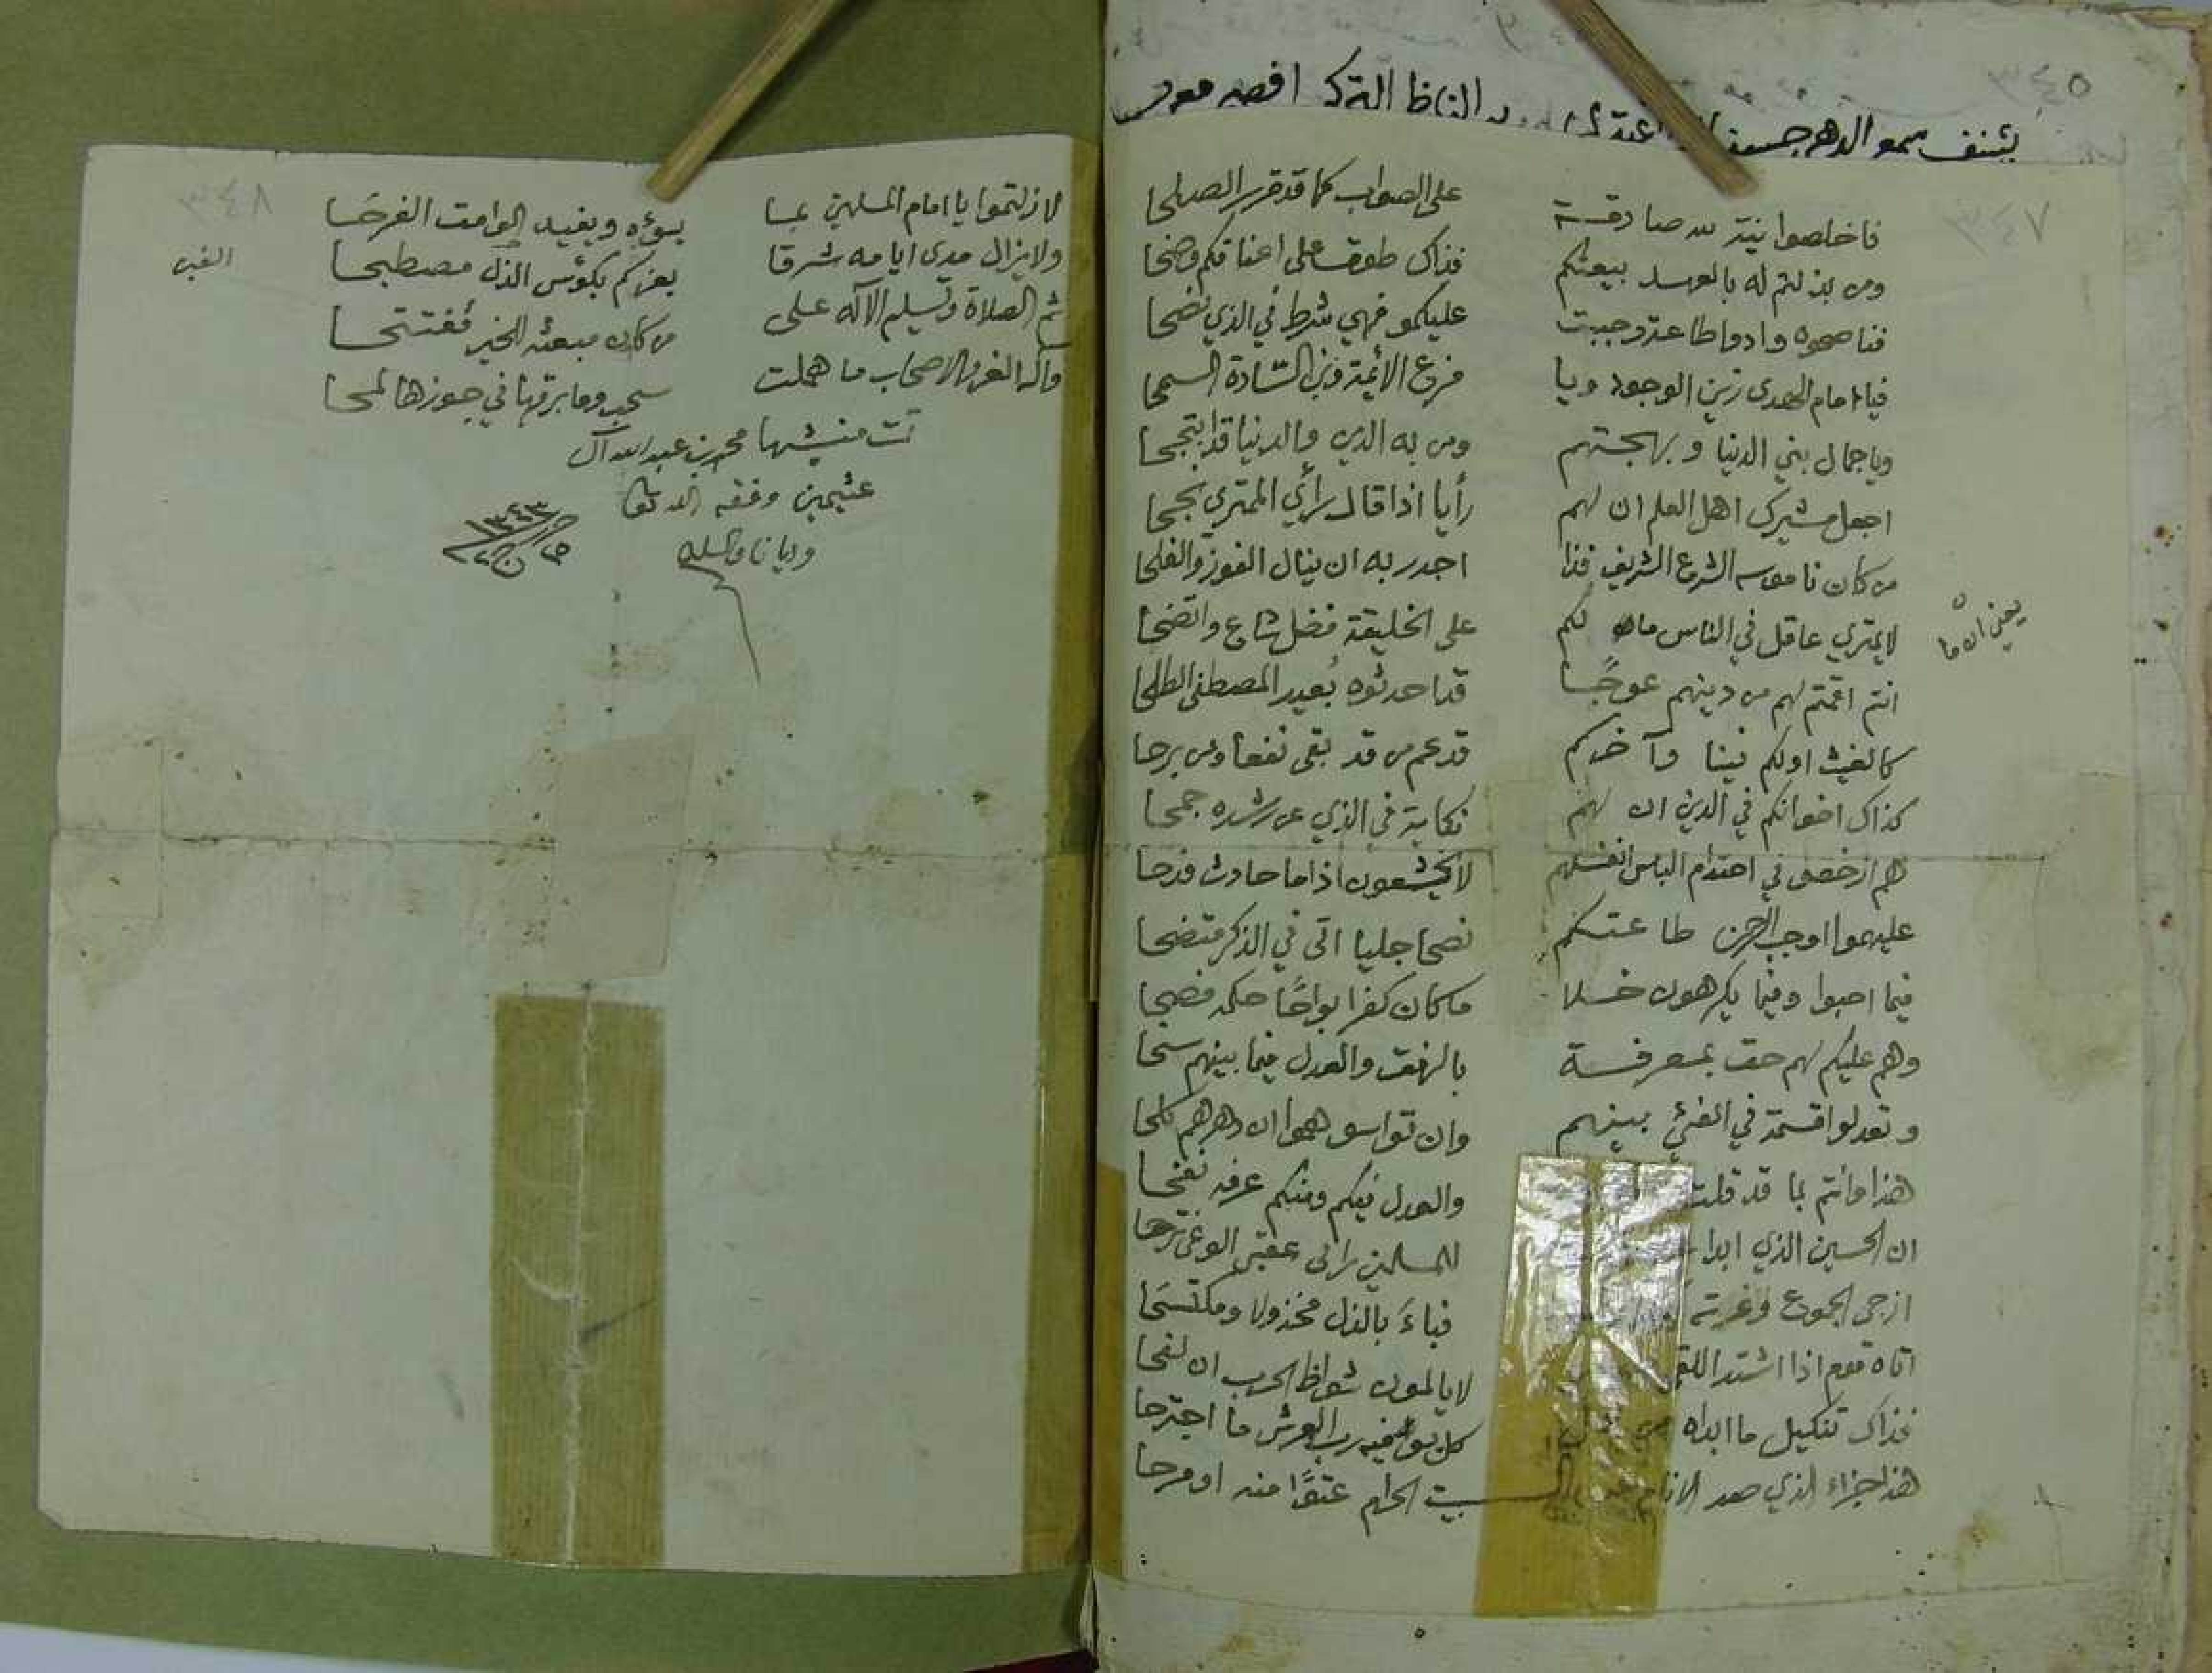 يشنف سمع الدهر
فاخلصوا نية لله صادقة على الصواب كما قد قرر الصلحا
ومن بذلتم له بالعهد بيعتكم فذاك طوق على اعناقكم وضحا
فناصحوه وادوا طاعة وجبت عليكمو فهي شرط في الذي نصحا
فيا امام الهدى زين الوجود ويا فرع الأئمة وابن السادة السمحا
ويا جمال بني الدنيا وبهجتهم ومن به الدين والدنيا قد ابتجحا
اجعل مشيرك اهل العلم ان لهم رأيا اذا قال رأي الممتري نجحا
من كان ناموسه الشرع الشريف فذا اجدر به ان ينال الفوز والفلحا
لا يمتري عاقل في الناس ما لكم على الخليقة فضل شاع واتضحا
يعني ان ما
انتم اقمتم لهم من دينهم عوجًا قد احدثوه بُعيد المصطفى الطلحا
كالغيث اولكم فينا وآخركم قد عم من قد بقى نفعا ومن برحا
كذاك اخوانكم في الدين ان لهم نكاية في الذي عن رشده جمحا
هم ارخصوا في احتدام الباس انفسهم لا يخشعون اذا ما حادث فدحا
عليهموا اوجب الرحمن طاعتكم نصحا جليا اتى في الذكر متضحا
فيما احبوا وفيما يكرهون خلا ما كان كفرا بواحًا حكمه فصحا
وهم عليكم لهم حق بمعرفة بالرفق والعدل فيما بينهم سمحا
وتعدلوا قسمة في الفئ بينهم وان تواسوهموا ان دهرهم كلحا
هذا وانتم بما قد قلت والعدل فيكم ومنكم عرفه نفحا
ان الحسين الذي ابدا للمسلمين راى عقبى الوغى ترحا
ازجى الجموع وغرته فباءَ بالذل مخذولا ومكتسحا
اتاه قوم اذا اشتد اللقا لا يالمون شواظ الحرب ان لفحا
فذاك تنكيل ما ابداه كل يوفيه رب العرش ما اجترحا
هذا جزاء الذي صد الانام عن البيت الحرام عتوًا منه او مرحا
لا زلتموا يا امام المسلمين بما يسؤه ويفيد الوامق الفرحا
ولا يزال مدى ايامه شرقا بعزكم بكؤس الذل مصطبحا
ثم الصلاة وتسليم الآله على من كان مبعثه للخير مُفتتحا
وآله الغر والاصحاب ما هملت سحب وما برقها في جوزها لمحا
تمت منشيها محمد بن عبد الله آل
عثيمين وفقه الله تعالى
١٣٤٣